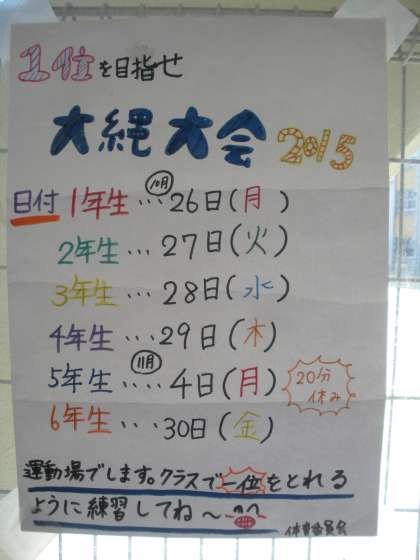 1位を目指せ
大縄大会2015
日付 1年生…10月26日(月)
2年生…27日(火)
3年生…28日(水)
4年生….29日(木)
5年生…..11月4日(月)
20分
休み
6年生….30日(金)
運動場でします。クラスで一位をとれる
ように練習してね〜
体育委員会